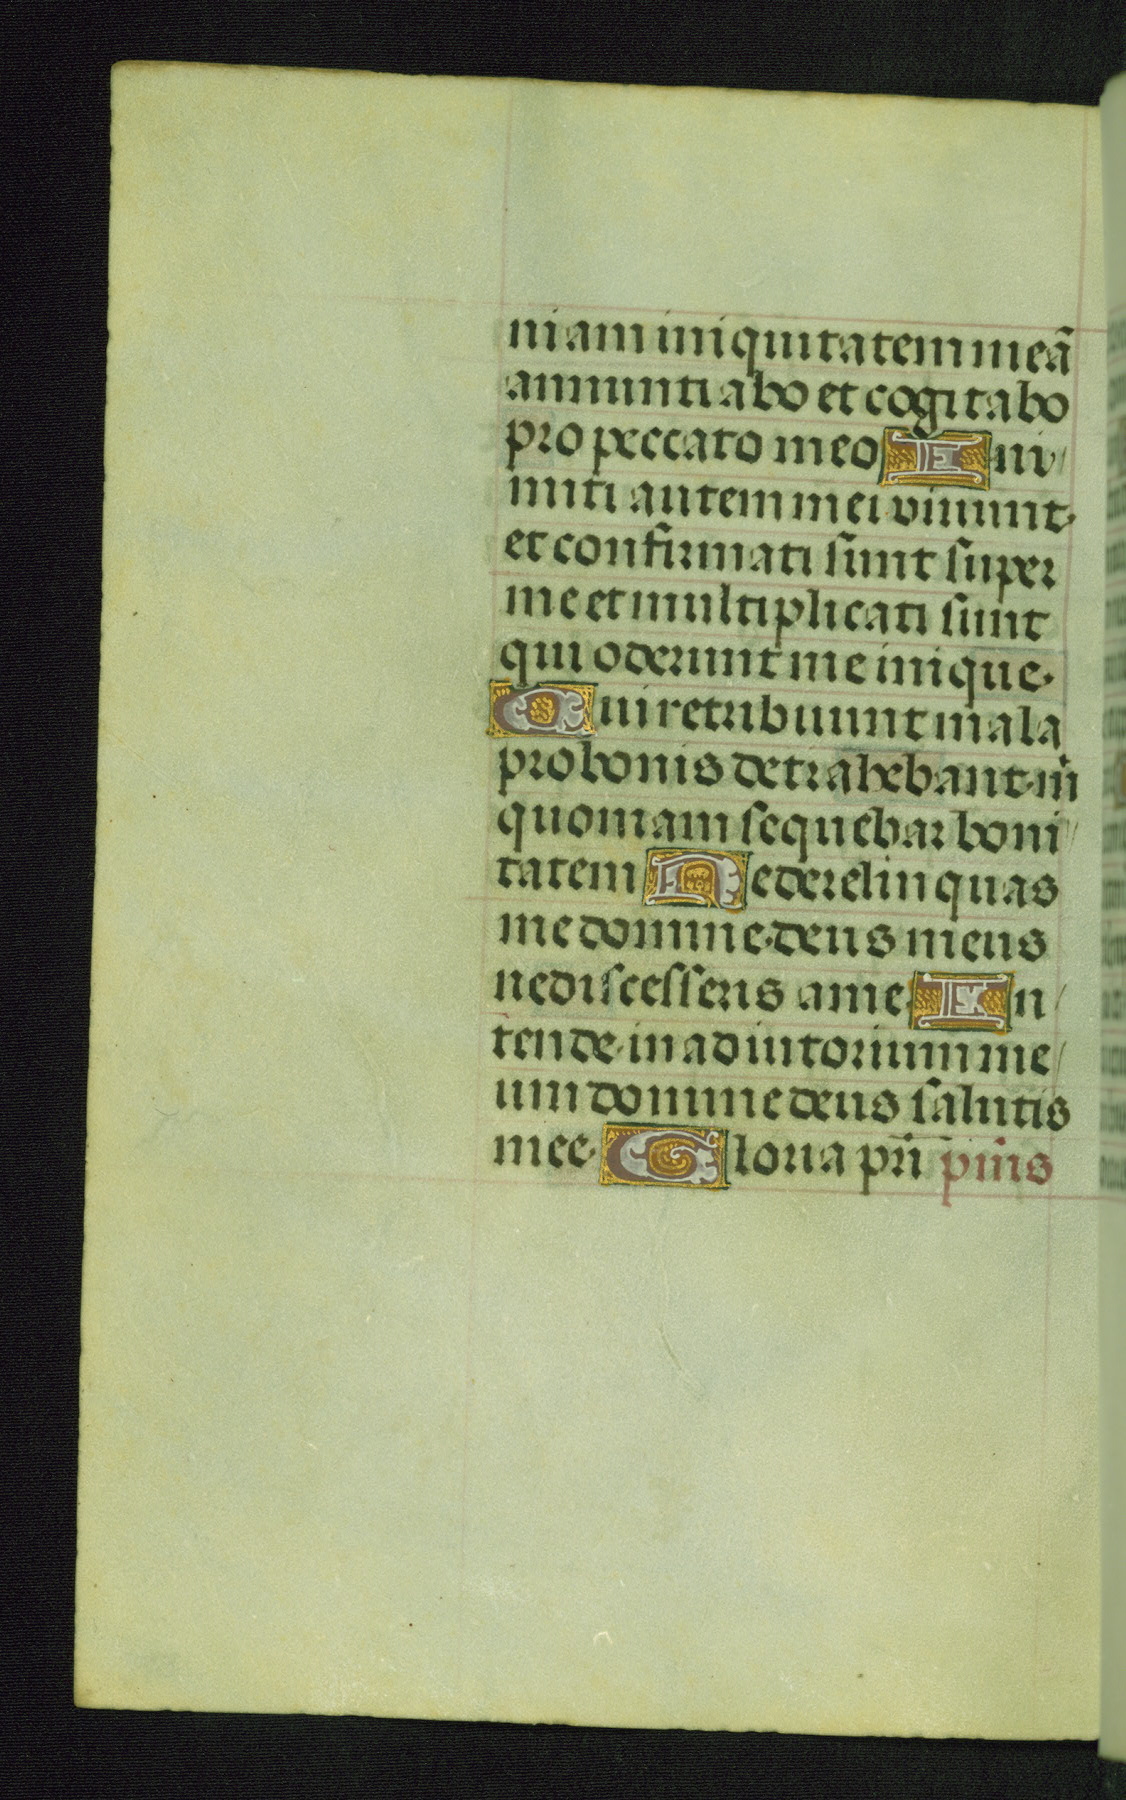 niam iniquitatem meā
annuntiabo et cogitabo
pro peccato meo Ini
mici autem mei viuunt
et confirmati sunt super
me et multiplicati sunt
qui oderunt me inique
Qui retribuunt mala
pro bonis detrahebant m̄
quoniam sequebar boni
tatem Ne derelinquas
me domine deus meus
ne discesseris a me In
tende in adiutorium me
um domine deus salutis
mee Gloria pr̄i p̄mis